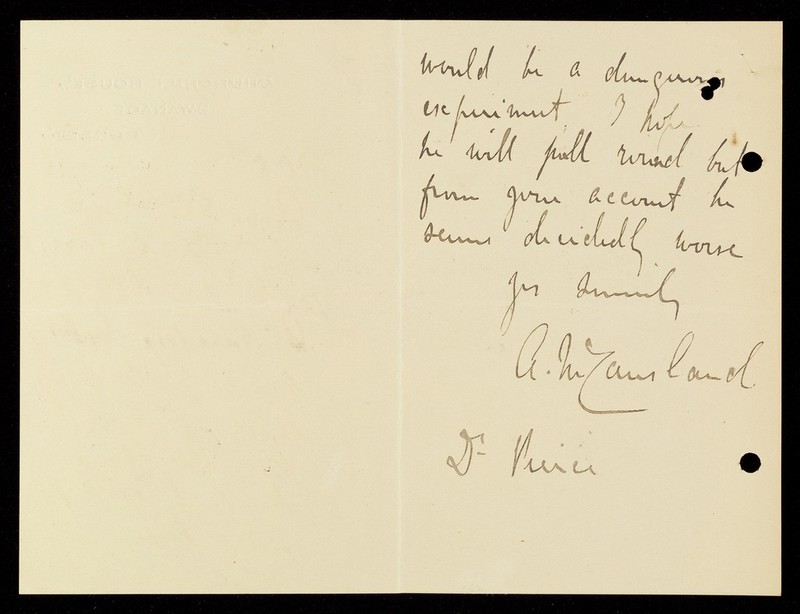 would be a dangerous
experiment. I hope
he will pull round but
from your account he
seems decidedly worse
yrs sincerely
A. McCausland
Dr Pierce